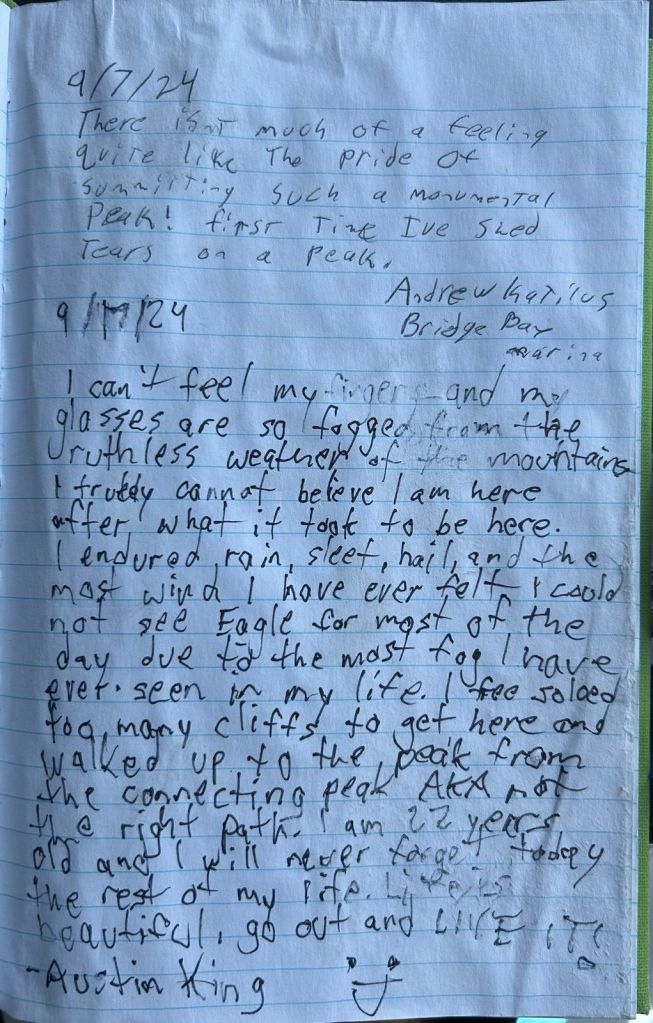 9/7/24
There isnt much of a feeling
quite like The pride of
summitting such a monumental
Peak! first Time Ive shed
Tears on a peak.
Andrew
Bridge Bay
marina
9/17/24
I can't feel my fingers and my
glasses are so fogged from the
ruthless weather of the mountains
I truley cannot believe I am here
after what it took to be here.
I endured rain, sleet, hail, and the
most wind I have ever felt. I could
not see Eagle for most of the
day due to the most fog I have
ever seen in my life. I free soloed
too many cliffs to get here and
walked up to the peak from
the connecting peak AKA not
the right path. I am 22 years
old and I will never forget today
the rest of my life. Life is
beautiful, go out and LIVE IT!
-Austin King